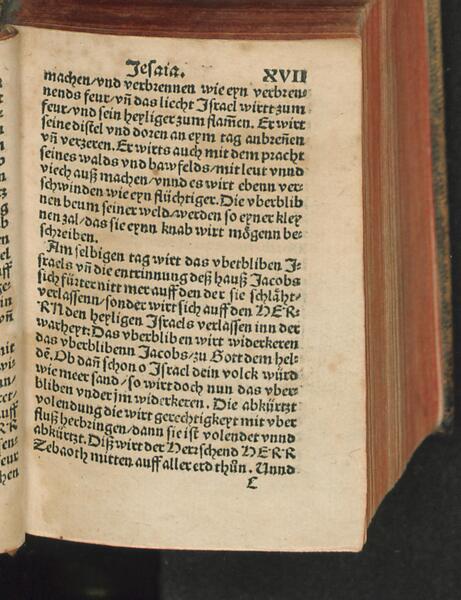 Jesaia. XVII
machen/vnd verbrennen wie eyn verbren-
nends feur/vn̄ das liecht Israel wirtt zum
feur/vnd sein heyliger zum flam̄en. Er wirt
seine distel vnd doren an eym tag anbren̄en
vn̄ verzeren. Er wirts auch mit dem pracht
seines walds vnd baw felds/mit leut vnnd
viech auß machen/vnnd es wirt ebenn ver-
schwinden wie eyn flüchtiger. Die vberblib
nen beum seiner weld/werden so eyner kley
nen zal/das sie eynn knab wirt mögenn be-
schreiben.
Am selbigen tag wirt das vberbliben I-
sraels vn̄ die entrinnung deß hauß Jacobs
sich fürter nitt mer auff den der sie schlåht/
verlassenn/sonder wirt sich auff den HER-
RN den heyligen Israels verlassen inn der
warheyt: Das vberbliben wirt widerkeren
das vberblibenn Jacobs/zu Gott dem hel-
dē. Ob dan̄ schon o Israel dein volck würd
wie meer sand/so wirt doch nun das vber-
bliben vnder jm widerkeren. Die abkürtzt
volendung die wirt gerechtigkeyt mit vber
fluß herbringen/dann sie ist volendet vnnd
abkürtzt. Diß wirt der Herrschend HERR
Zebaoth mitten auff aller erd thün. Vnnd
C